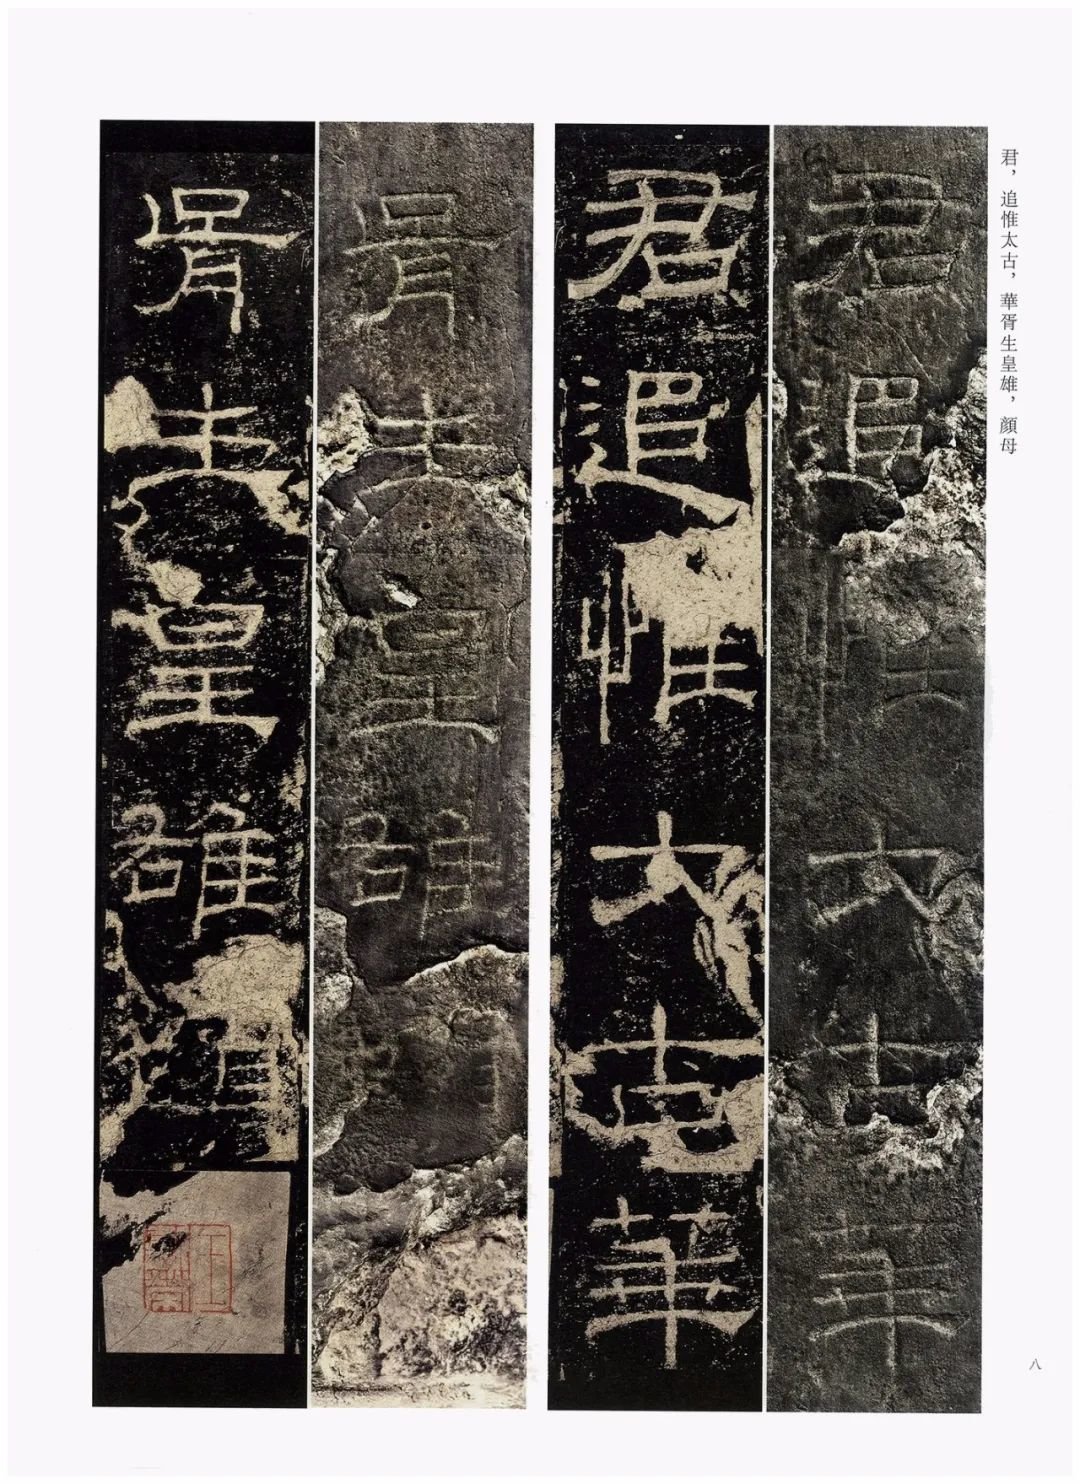 君，追惟太古，華胥生皇雄，顏母
君追惟太古華
君追惟太古華
胥生皇雄顏
胥生皇雄顏
八